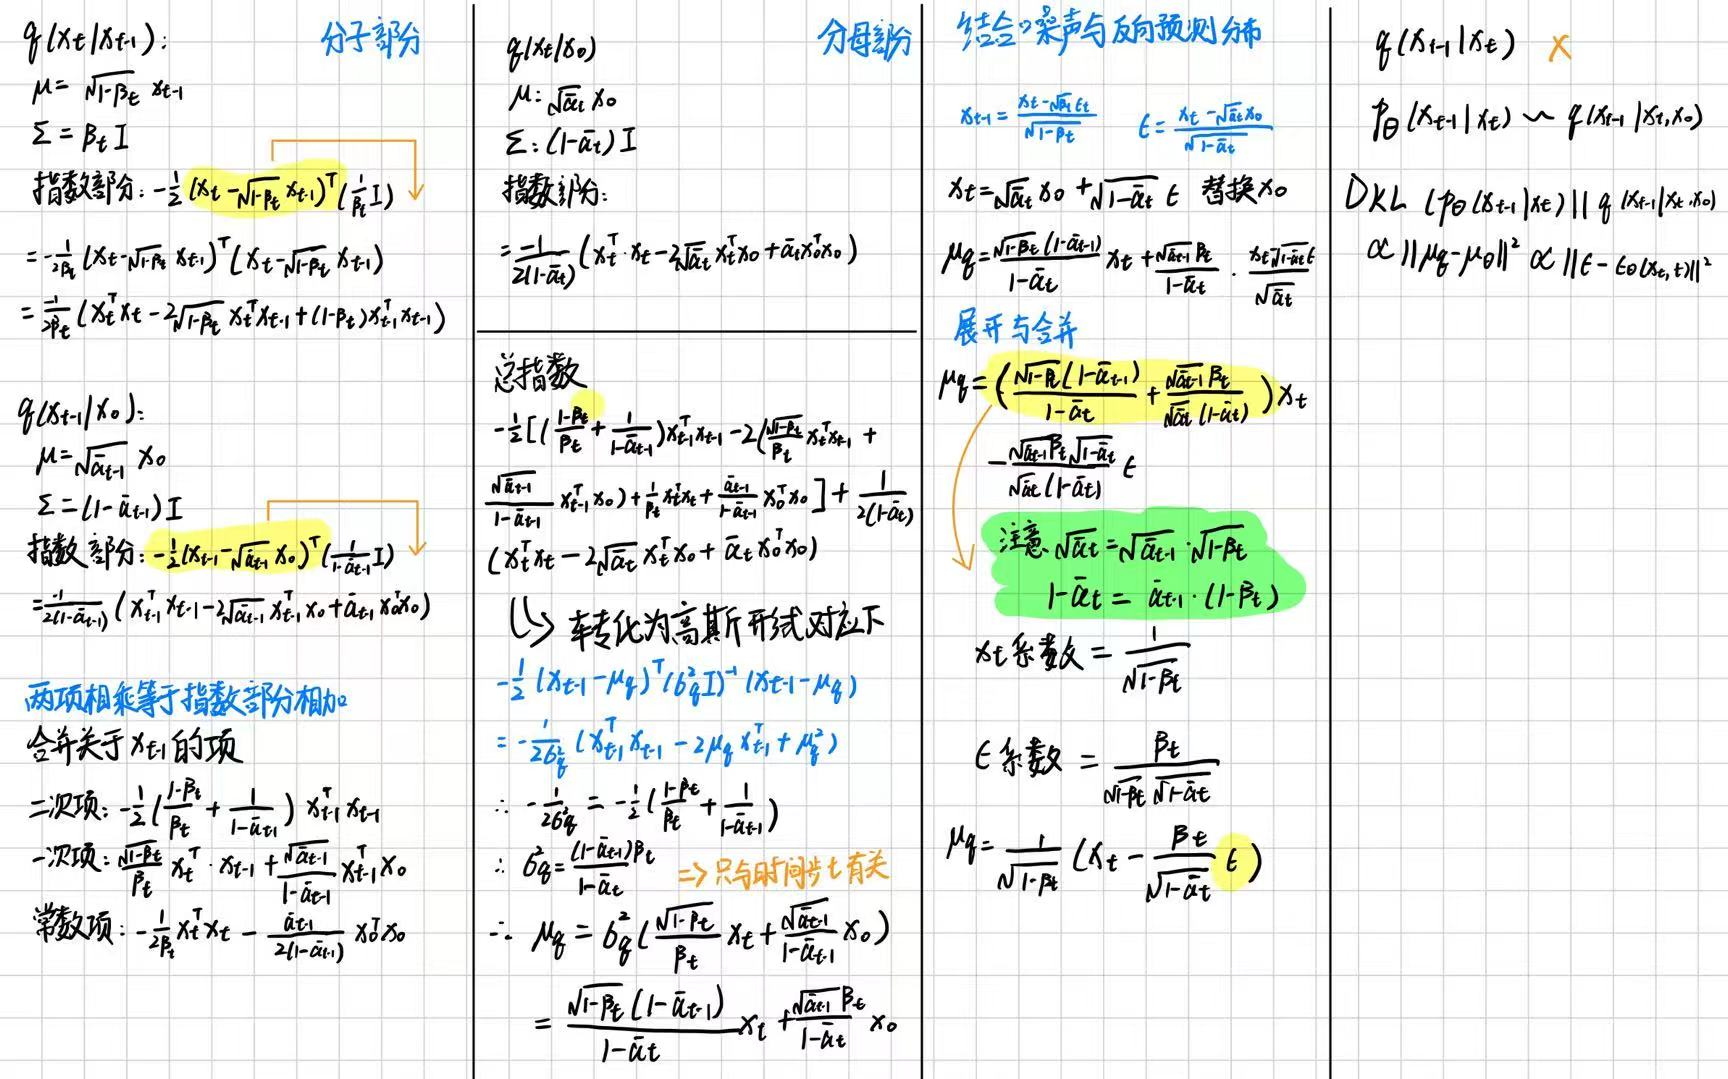 q(xt|xt-1): 分子部分
μ = √(1-βt) xt-1
Σ = βt I
指数部分: -1/2 (xt - √(1-βt) xt-1)ᵀ (1/βt I)
= -1/(2βt) (xt - √(1-βt) xt-1)ᵀ (xt - √(1-βt) xt-1)
= -1/(2βt) (xtᵀxt - 2√(1-βt) xtᵀxt-1 + (1-βt) xt-1ᵀxt-1)
q(xt-1|x0):
μ = √ᾱt-1 x0
Σ = (1-ᾱt-1) I
指数部分: -1/2 (xt-1 - √ᾱt-1 x0)ᵀ (1/(1-ᾱt-1) I)
= -1/(2(1-ᾱt-1)) (xt-1ᵀxt-1 - 2√ᾱt-1 xt-1ᵀx0 + ᾱt-1 x0ᵀx0)
两项相乘等于指数部分相加
合并关于 xt-1 的项
二次项: -1/2 ((1-βt)/βt + 1/(1-ᾱt-1)) xt-1ᵀxt-1
一次项: √(1-βt)/βt xtᵀ·xt-1 + √ᾱt-1/(1-ᾱt-1) xt-1ᵀx0
常数项: -1/(2βt) xtᵀxt - ᾱt-1/(2(1-ᾱt-1)) x0ᵀx0
q(xt|x0) 分母部分
μ: √ᾱt x0
Σ: (1-ᾱt) I
指数部分:
= -1/(2(1-ᾱt)) (xtᵀ·xt - 2√ᾱt xtᵀx0 + ᾱt x0ᵀx0)
总指数
-1/2 [((1-βt)/βt + 1/(1-ᾱt-1)) xt-1ᵀxt-1 - 2(√(1-βt)/βt xtᵀxt-1 +
√ᾱt-1/(1-ᾱt-1) xt-1ᵀx0) + 1/βt xtᵀxt + ᾱt-1/(1-ᾱt-1) x0ᵀx0] + 1/(2(1-ᾱt))
(xtᵀxt - 2√ᾱt xtᵀx0 + ᾱt x0ᵀx0)
↳ 转化为高斯形式对应下
-1/2 (xt-1 - μq)ᵀ (σq² I)⁻¹ (xt-1 - μq)
= -1/(2σq²) (xt-1ᵀxt-1 - 2μq xt-1ᵀ + μq²)
∴ -1/(2σq²) = -1/2 ((1-βt)/βt + 1/(1-ᾱt-1))
∴ σq² = (1-ᾱt-1)βt/(1-ᾱt) => 只与时间步t有关
∴ μq = σq² (√(1-βt)/βt xt + √ᾱt-1/(1-ᾱt-1) x0)
= √(1-βt)(1-ᾱt-1)/(1-ᾱt) xt + √ᾱt-1 βt/(1-ᾱt) x0
结合噪声与反向预测分布
xt-1 = (xt - √βt εt)/√(1-βt) ε = (xt - √ᾱt x0)/√(1-ᾱt)
xt = √ᾱt x0 + √(1-ᾱt) ε 替换x0
μq = √(1-βt)(1-ᾱt-1)/(1-ᾱt) xt + √ᾱt-1 βt/(1-ᾱt) · (xt - √(1-ᾱt) ε)/√ᾱt
展开与合并
μq = (√(1-βt)(1-ᾱt-1)/(1-ᾱt) + √ᾱt-1 βt/(√ᾱt (1-ᾱt))) xt
- √ᾱt-1 βt √(1-ᾱt)/(√ᾱt (1-ᾱt)) ε
注意 √ᾱt = √ᾱt-1 · √(1-βt)
1-ᾱt = ᾱt-1 · (1-βt)
xt系数 = 1/√(1-βt)
ε系数 = βt/(√(1-βt) √(1-ᾱt))
μq = 1/√(1-βt) (xt - βt/√(1-ᾱt) ε)
q(xt-1|xt) ×
pθ(xt-1|xt) ~ q(xt-1|xt,x0)
DKL (pθ(xt-1|xt) || q(xt-1|xt,x0)
∝ ||μq - μθ||² ∝ ||ε - εθ(xt,t)||²